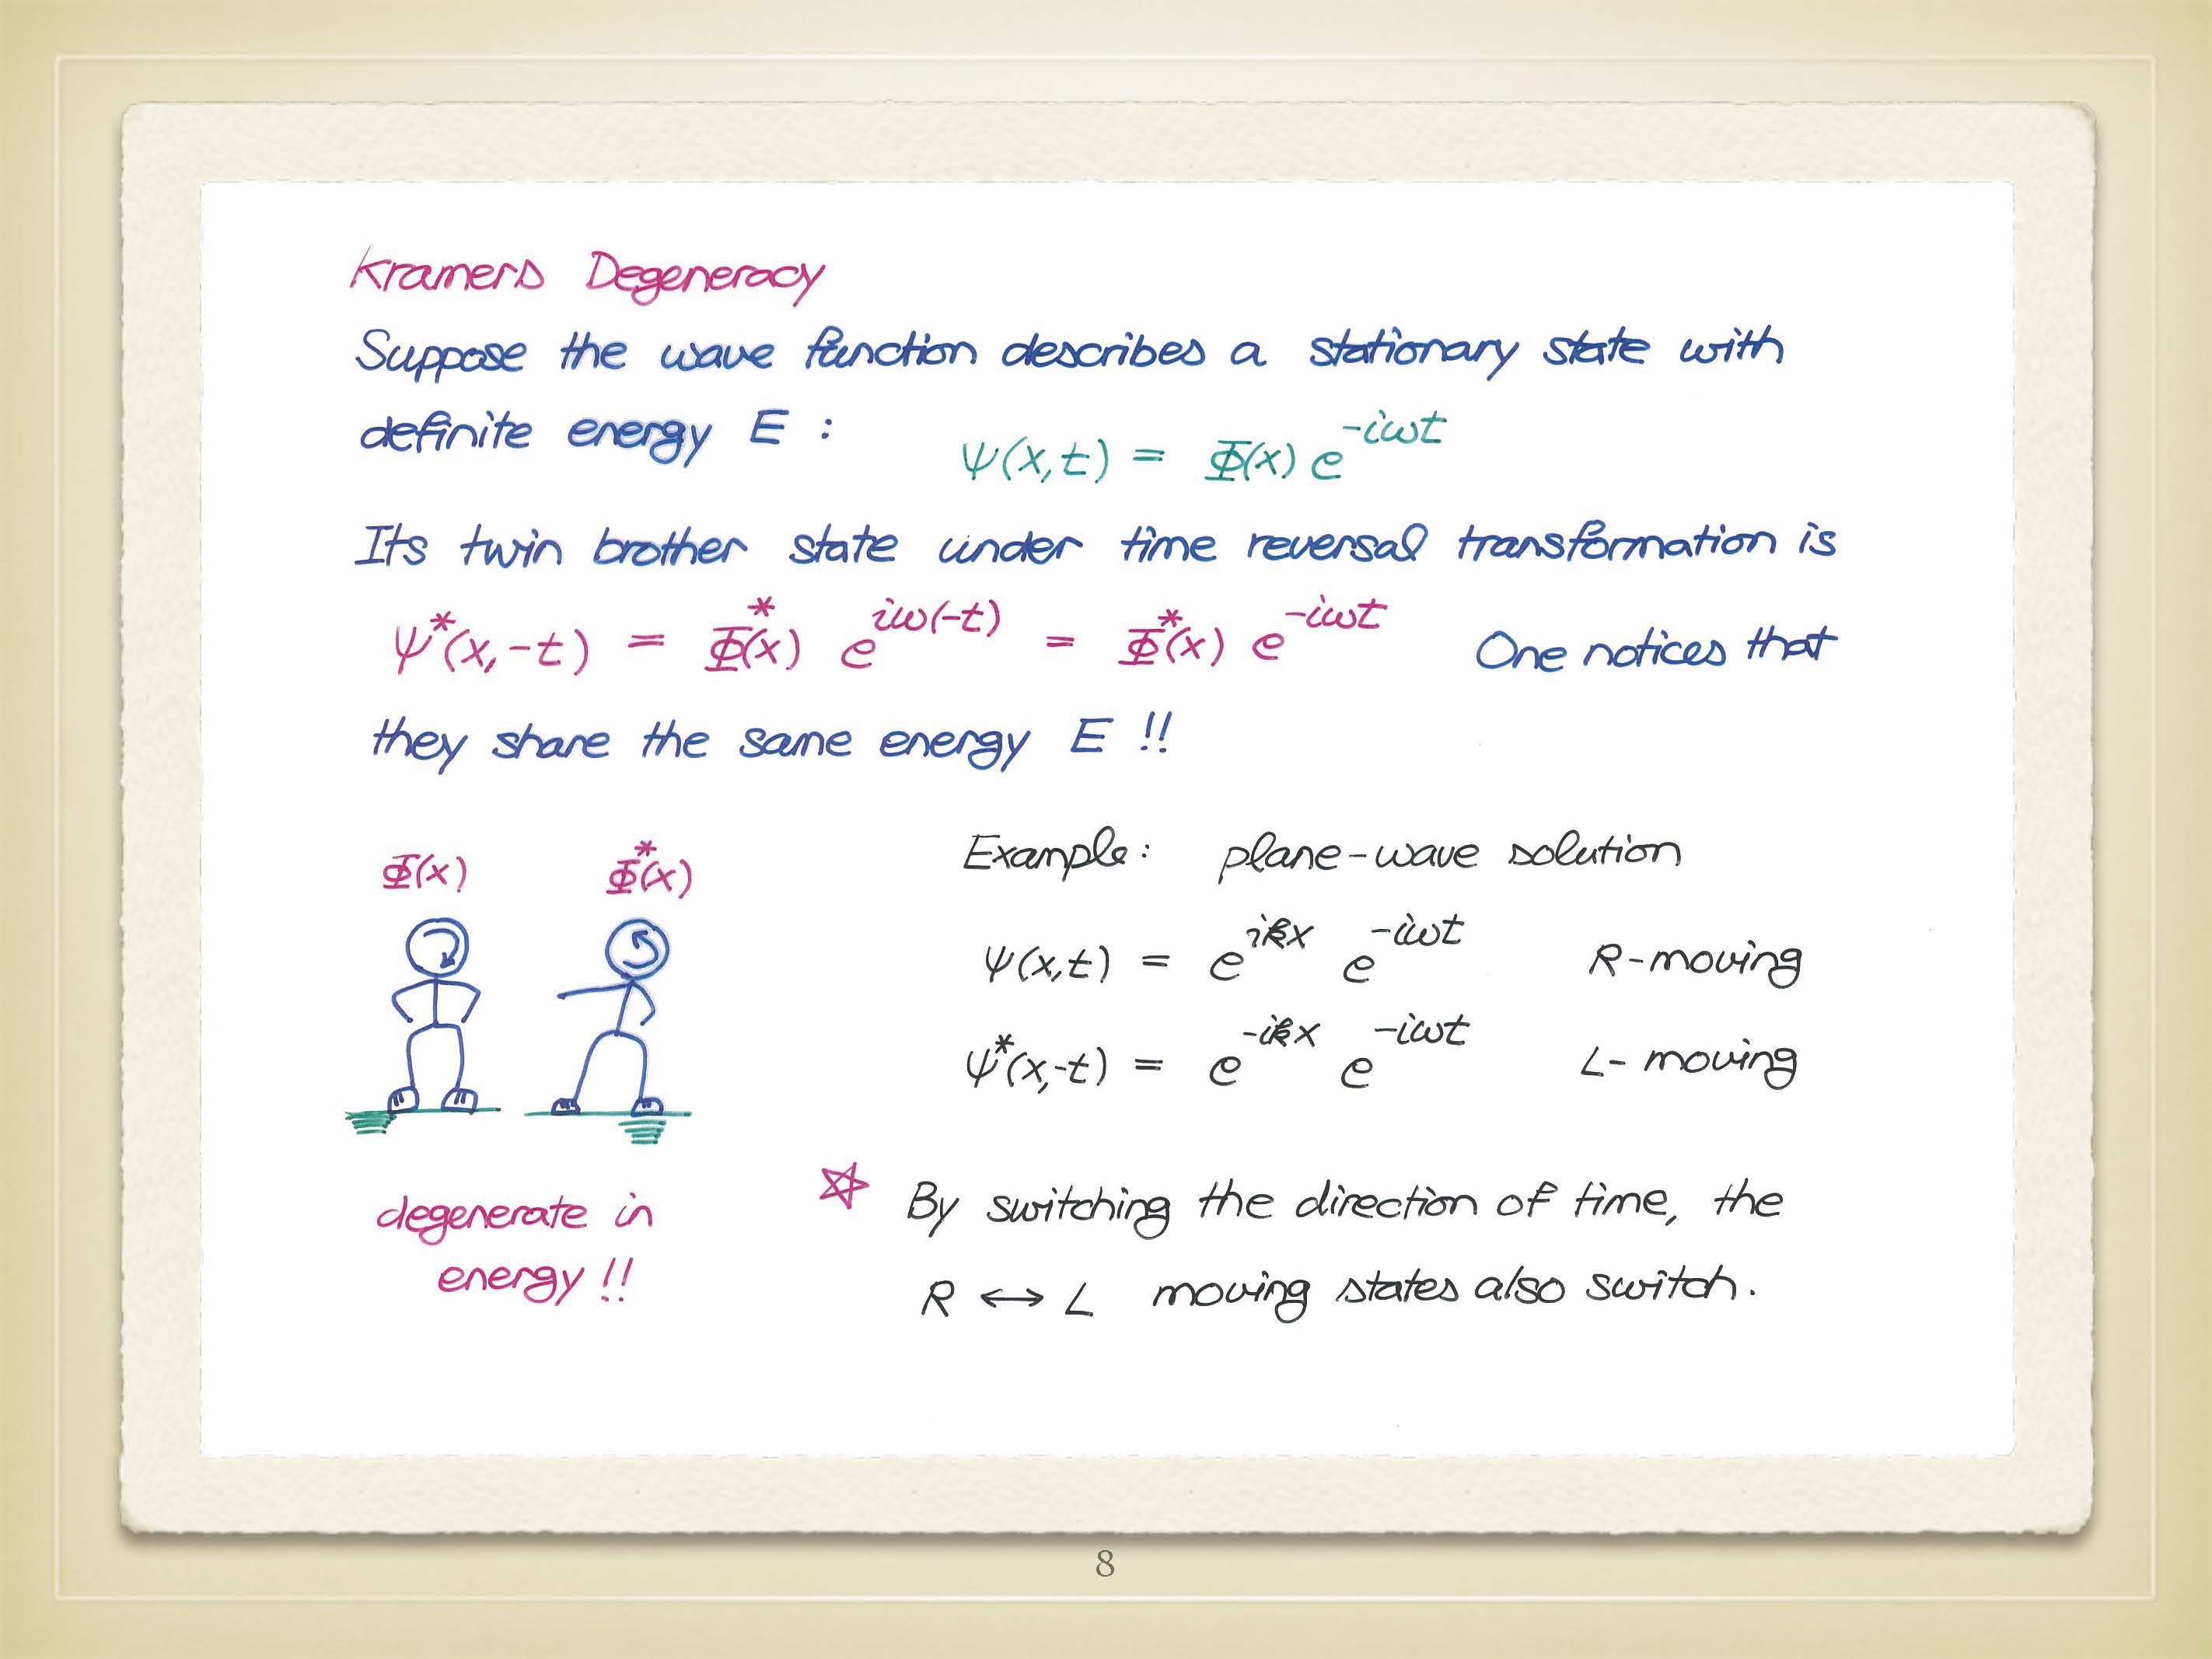 Kramers Degeneracy
Suppose the wave function describes a stationary state with
definite energy E : Ψ(x,t) = Φ(x) e^{-iωt}
Its twin brother state under time reversal transformation is
Ψ*(x,-t) = Φ*(x) e^{iω(-t)} = Φ*(x) e^{-iωt} One notices that
they share the same energy E !!
Φ(x) Φ*(x)
degenerate in
energy !!
Example: plane-wave solution
Ψ(x,t) = e^{ikx} e^{-iωt} R-moving
Ψ*(x,-t) = e^{-ikx} e^{-iωt} L-moving
☆ By switching the direction of time, the
R ↔ L moving states also switch.
8